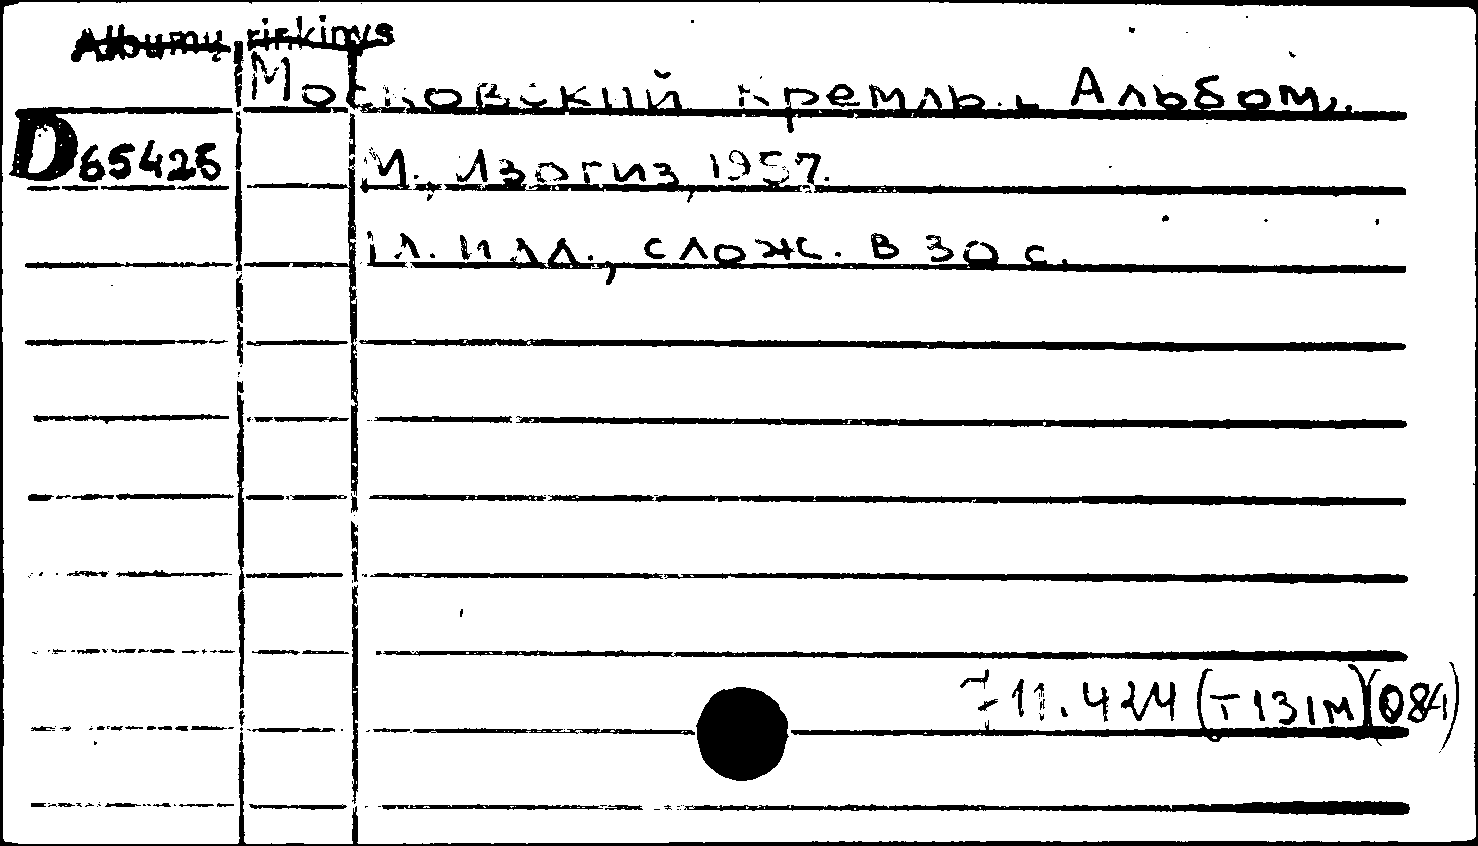 Albumų rinkinys
Московский кремль. Альбом.
D65426 М., Изогиз, 1957.
1 л. илл., слож. в 30 с.
711.424(Т131М)(084)